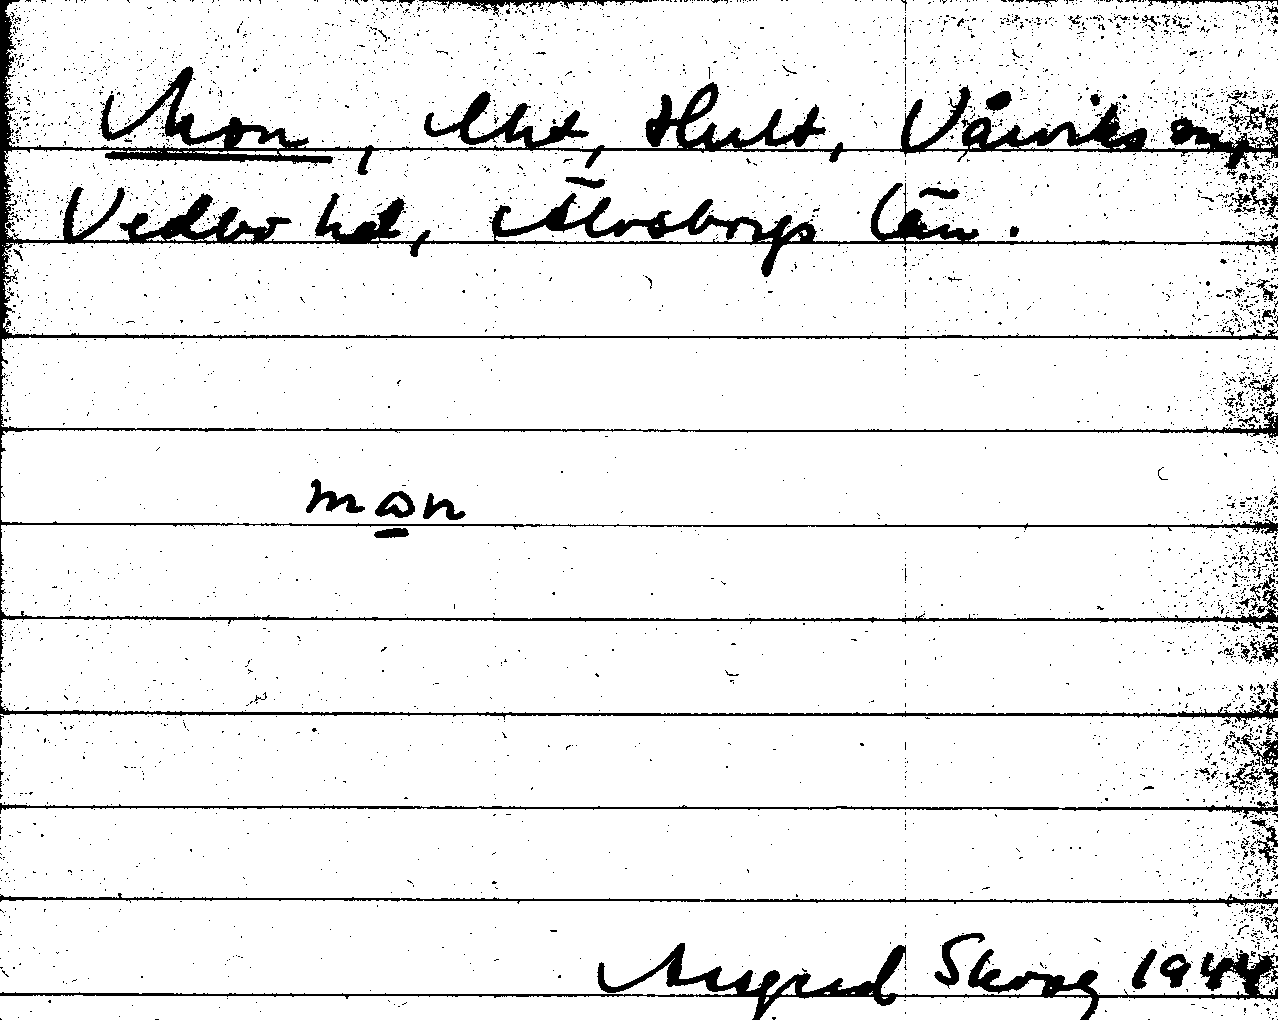 Mon, lht, Hult, Vårviks sn,
Vedbo hd, Älvsborgs län.
mɷn
Skoog 1944